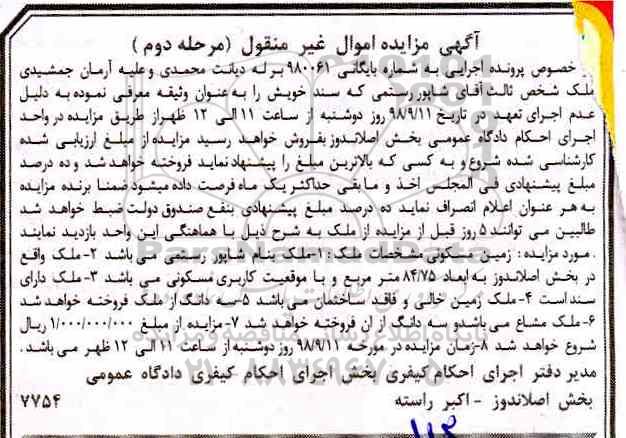 آگهی مزایده اموال غیر منقول (مرحله دوم)
خصوص پرونده اجرایی به شماره بایگانی ۹۸۰۰۶۱ بر له دیانت محمدی و علیه آرمان جمشیدی
ملک شخص ثالث آقای شاپور رستمی که سند خویش را به عنوان وثیقه معرفی نموده به دلیل
عدم اجرای تعهد در تاریخ ۹۸/۹/۱۱ روز دوشنبه از ساعت ۱۱ الی ۱۲ ظهر از طریق مزایده در واحد
اجرای احکام دادگاه عمومی بخش اصلاندوز بفروش خواهد رسید مزایده از مبلغ ارزیابی شده
کارشناسی شده شروع و به کسی که بالاترین مبلغ را پیشنهاد نماید فروخته خواهد شد و ده درصد
مبلغ پیشنهادی فی المجلس اخذ و مابقی حداکثر یک ماه فرصت داده میشود ضمنا برنده مزایده
به هر عنوان اعلام انصراف نماید ده درصد مبلغ پیشنهادی بنفع صندوق دولت ضبط خواهد شد
طالبین می توانند ۵ روز قبل از مزایده از ملک به شرح ذیل با هماهنگی این واحد بازدید نمایند
. مورد مزایده : زمین مسکونی مشخصات ملک : ۱-ملک بنام شاپور رستمی می باشد ۲-ملک واقع
در بخش اصلاندوز به ابعاد ۸۴/۷۵ متر مربع و با موقعیت کاربری مسکونی می باشد ۳-ملک دارای
سند است ۴-ملک زمین خالی و فاقد ساختمان می باشد ۵-سه دانگ از ملک فروخته خواهد شد
۶-ملک مشاع می باشدو سه دانگ از ان فروخته خواهد شد ۷-مزایده از مبلغ ۱/۰۰۰/۰۰۰/۰۰۰ ریال
شروع خواهد شد ۸-زمان مزایده در مورخه ۹۸/۹/۱۱ روز دوشنبه از ساعت ۱۱ الی ۱۲ ظهر می باشد .
مدیر دفتر اجرای احکام کیفری بخش اجرای احکام کیفری دادگاه عمومی
بخش اصلاندوز -اکبر راسته
۷۷۵۴